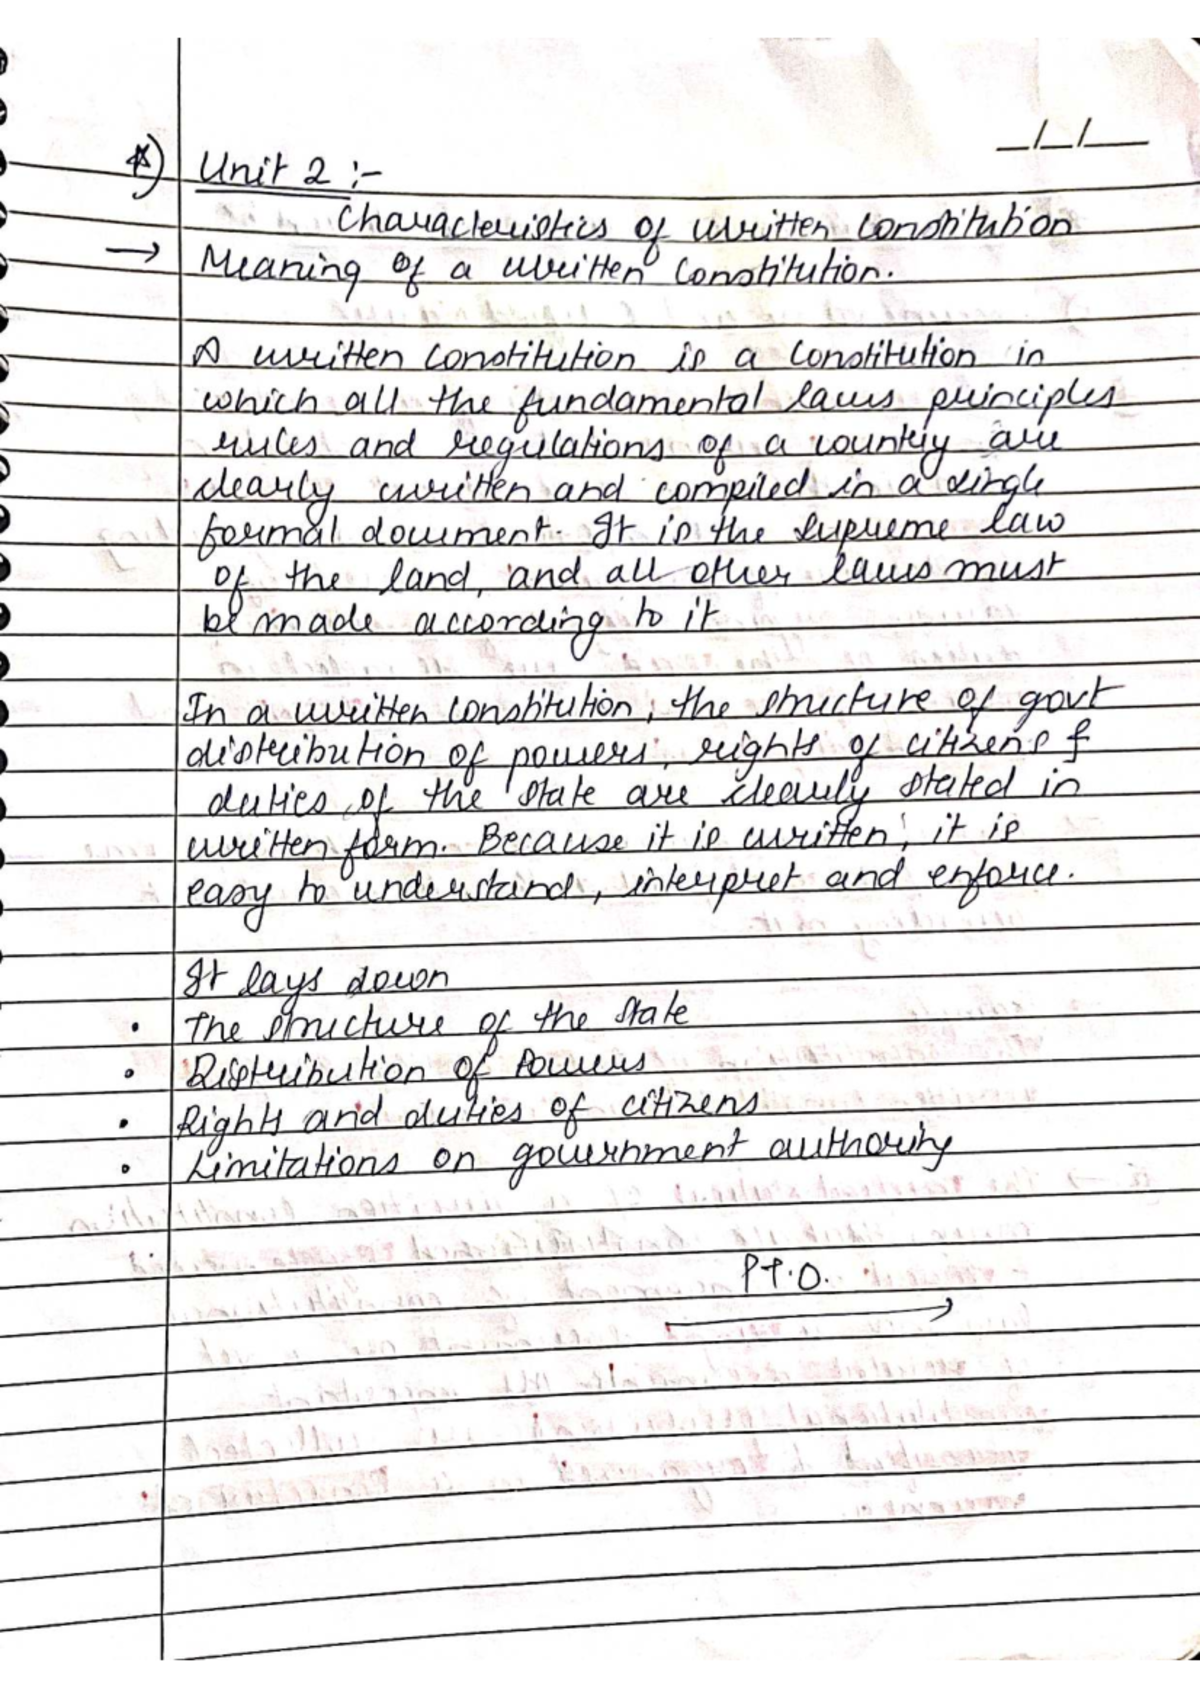 _/_/__
*) Unit 2 :-
Characteristics of written Constitution
→ Meaning of a written Constitution.
A written constitution is a constitution in
which all the fundamental laws principles
rules and regulations of a country are
clearly written and compiled in a single
formal document. It is the supreme law
of the land, and all other laws must
be made according to it
In a written constitution, the structure of govt
distribution of powers, rights of citizens &
duties of the state are clearly stated in
written form. Because it is written, it is
easy to understand, interpret and enforce.
It lays down
• The structure of the state
• Distribution of Powers
• Rights and duties of citizens
• Limitations on government authority
P.T.O.
→